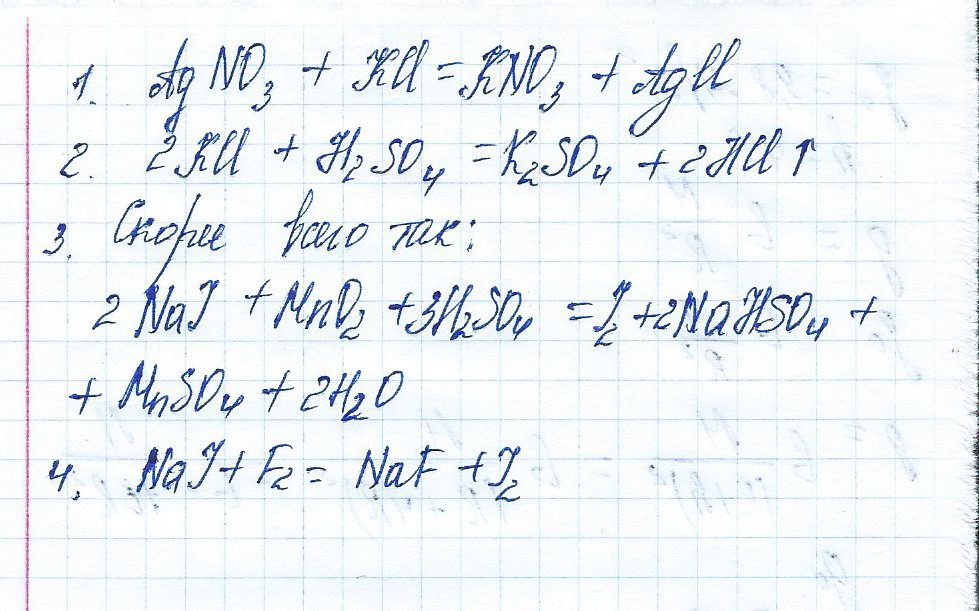 1. AgNO₃ + KCl = KNO₃ + AgCl
2. 2KCl + H₂SO₄ = K₂SO₄ + 2HCl ↑
3. Скорее всего так:
2 NaI + MnO₂ + 3H₂SO₄ = I₂ + 2NaHSO₄ +
+ MnSO₄ + 2H₂O
4. NaI + F₂ = NaF + I₂